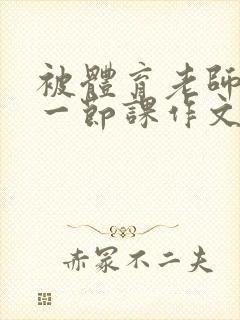 被體育老師
一節課作文
赤冢不二夫